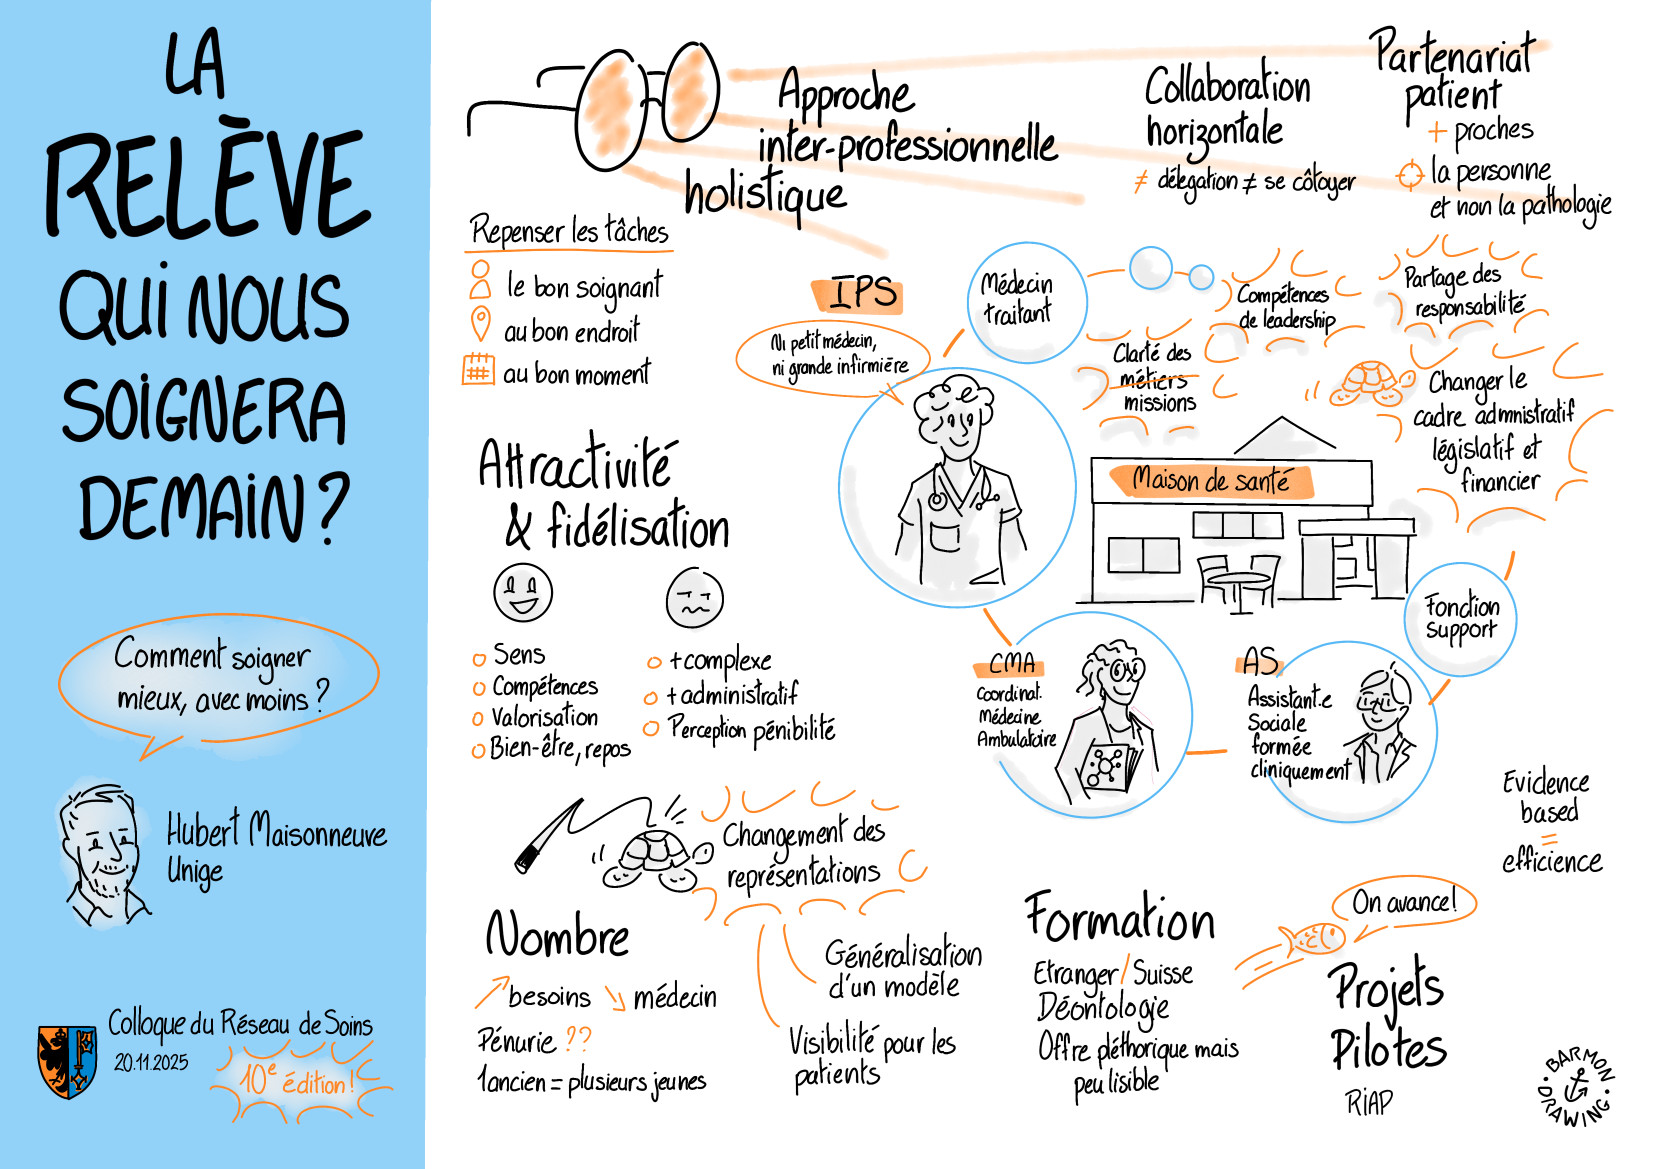 LA
RELÈVE
QUI NOUS
SOIGNERA
DEMAIN ?
Comment soigner
mieux, avec moins ?
Hubert Maisonneuve
Unige
Colloque du Réseau de Soins
20.11.2025
10e édition !
Approche
inter-professionnelle
holistique
Collaboration
horizontale
≠ délegation ≠ se côtoyer
Partenariat
patient
+ proches
la personne
et non la pathologie
Repenser les tâches
le bon soignant
au bon endroit
au bon moment
IPS
Ni petit médecin,
ni grande infirmière
Médecin
traitant
Compétences
de leadership
Partage des
responsabilité
Clarté des
métiers
missions
Changer le
cadre admnistratif
législatif et
financier
Maison de santé
Fonction
support
CMA
Coordinat.
Médecine
Ambulatoire
AS
Assistant.e
Sociale
formée
cliniquement
Attractivité
& fidélisation
Sens
Compétences
Valorisation
Bien-être, repos
+ complexe
+ administratif
Perception pénibilité
Changement des
représentations
Généralisation
d'un modèle
Visibilité pour les
patients
Nombre
↗ besoins ↘ médecin
Pénurie ??
1 ancien = plusieurs jeunes
Formation
Etranger / Suisse
Déontologie
Offre pléthorique mais
peu lisible
Evidence
based
=
efficience
On avance !
Projets
Pilotes
RIAP
BARMON
DRAWING